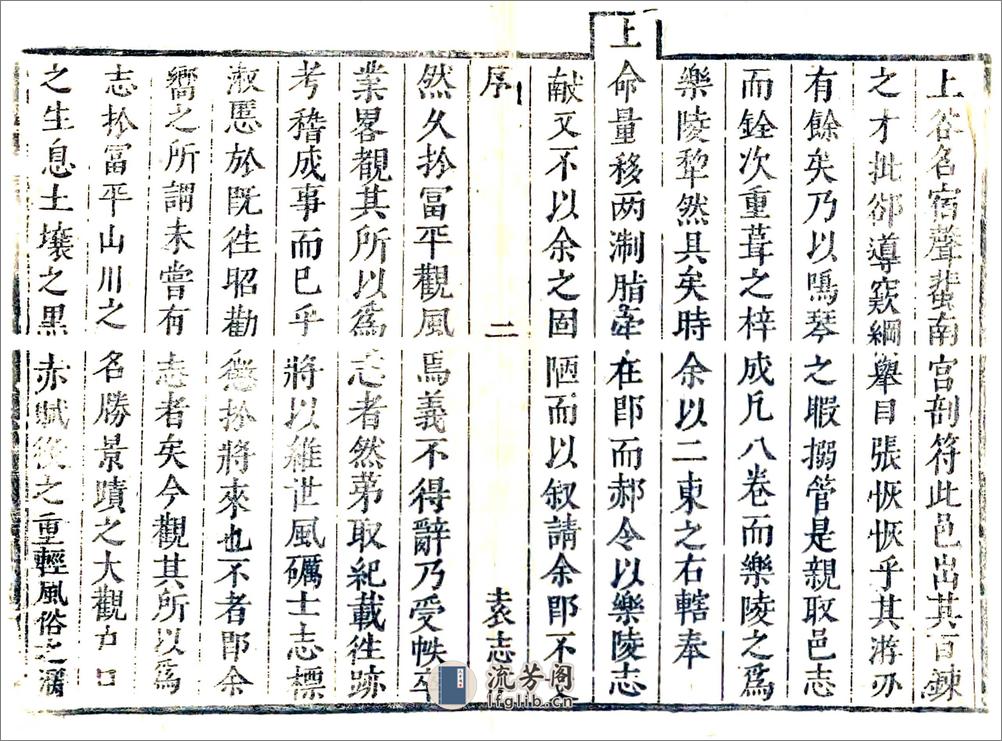 上谷名宿聲蜚南宮剖符此邑出其百鍊
之才批郤導窾綱舉目張恢恢乎其游刃
有餘矣乃以鳴琴之暇搦管是親取邑志
而銓次重葺之梓成凡八卷而樂陵之為
樂陵犂然具矣時余以二東之右轄奉
上
命量移两淛脂舝在即而郝令以樂陵志
献文不以余之固陋而以叙請余即不
序 二 袁志
然久扵冨平觀風焉義不得辭乃受帙卒
業畧覩其所以為志者然苐取紀載徃跡
考稽成事而已乎將以維世風礪士志標
淑慝於既徃昭勸懲扵將來也不者即余
嚮之所謂未嘗有志者矣今觀其所以為
志扵冨平山川之名勝景蹟之大觀户口
之生息土壤之黒赤賦役之重輕風俗之
流芳阁
lfglib.cn